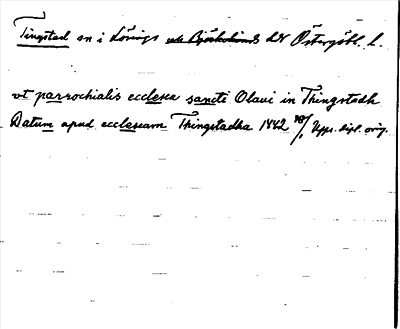 Tingstad sn i Lösings och Björkekinds hdr Östergötl. l.
vt parrochialis ecclesea sancti Olaui in Thingstadh
Datum apud eccleseam Thingstadha 1442 10/1 Upps. dipl. orig.